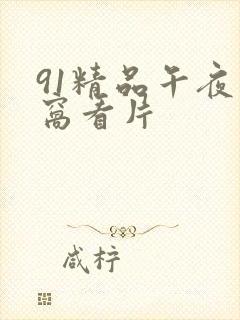 91精品午夜
窩看片
咸柠